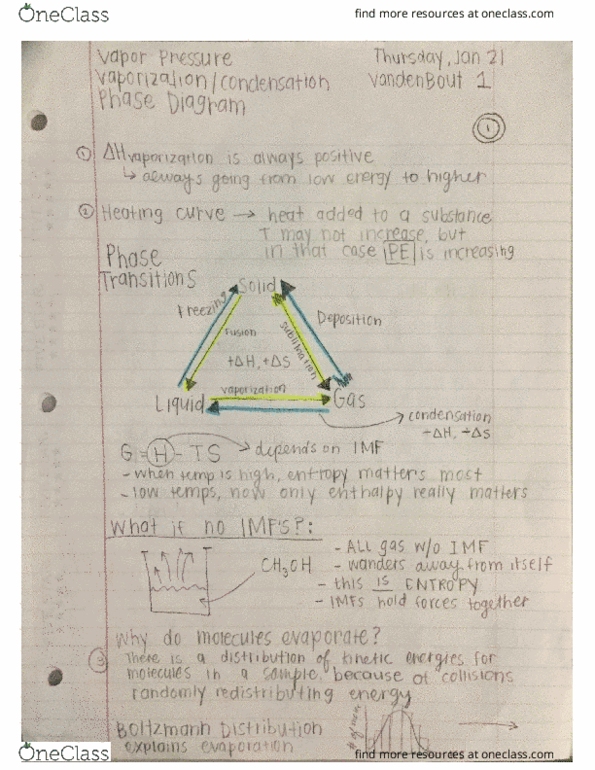 OneClass
find more resources at oneclass.com
Vapor Pressure
Thursday, Jan 21
Vaporization/condensation
VandenBout 1
Phase Diagram
1
① ΔHvaporization is always positive
↳ always going from low energy to higher
② Heating curve → heat added to a substance
T may not increase, but
in that case PE is increasing
Phase
Transitions
Solid
Freezing
Fusion
Sublimation
Deposition
+ΔH, +ΔS
vaporization
Liquid
Gas
condensation
-ΔH, -ΔS
G = H - TS → depends on IMF
- when temp is high, entropy matters most
- low temps, now only enthalpy really matters
What if no IMF's?:
- ALL gas w/o IMF
CH3OH
- wanders away from itself
- this is ENTROPY
- IMFs hold forces together
Why do molecules evaporate?
③ There is a distribution of kinetic energies for
molecules in a sample, because of collisions
randomly redistributing energy
Boltzmann Distribution
explains evaporation
OneClass
find more resources at oneclass.com